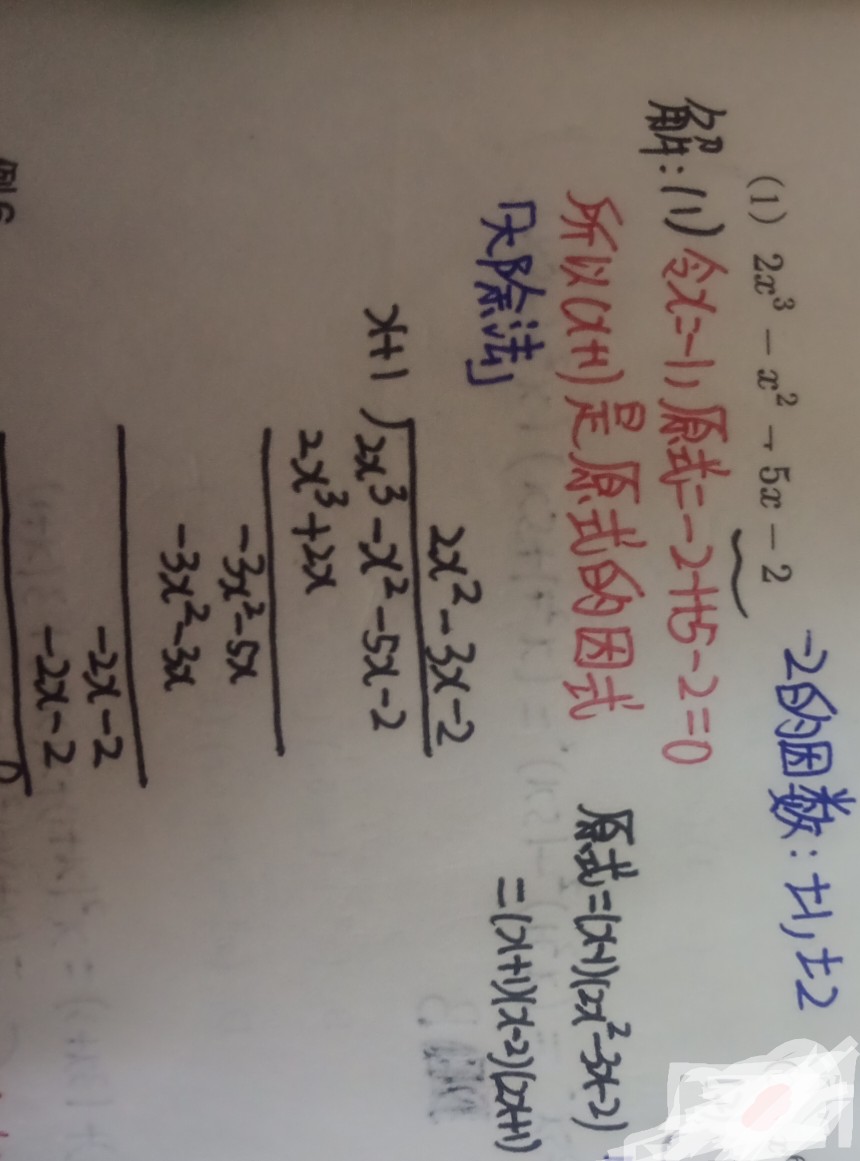 (1) 2x³ - x² - 5x - 2
-2的因数：±1，±2
解：(1) 令x=-1，原式=-2-1+5-2=0
所以(x+1)是原式的因式
「大除法」
2x²-3x-2
x+1 ) 2x³-x²-5x-2
2x³+2x
-3x²-5x
-3x²-3x
-2x-2
-2x-2
0
原式=(x-1)(2x²-3x-2)
=(x+1)(x-2)(2x+1)
例6